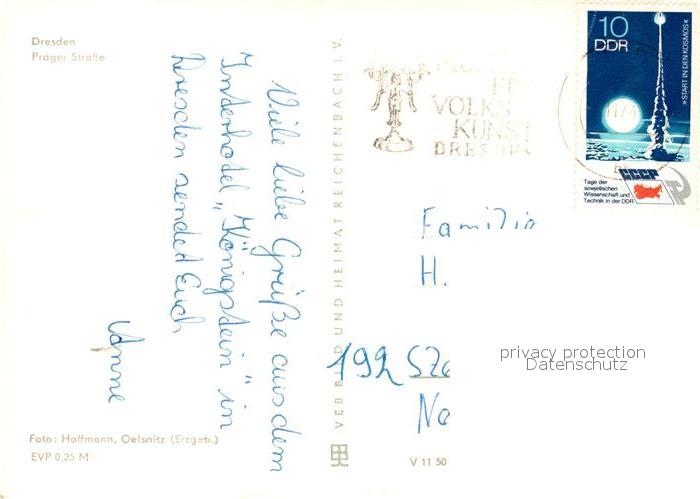 Dresden
Prager Straße
Viele liebe Grüße aus dem
Interhotel „Königstein" in
Dresden sendet Euch
Foto: Hoffmann, Oelsnitz (Erzgeb.)
EVP 0,25 M
VEB BILD UND HEIMAT REICHENBACH I. V.
V 11 50
VOLKS
KUNST
DRESDEN
10
DDR
»START IN DEN KOSMOS«
CCCP
Tage der
sowjetischen
Wissenschaft und
Technik in der DDR
Familie
H.
192
privacy protection
Datenschutz